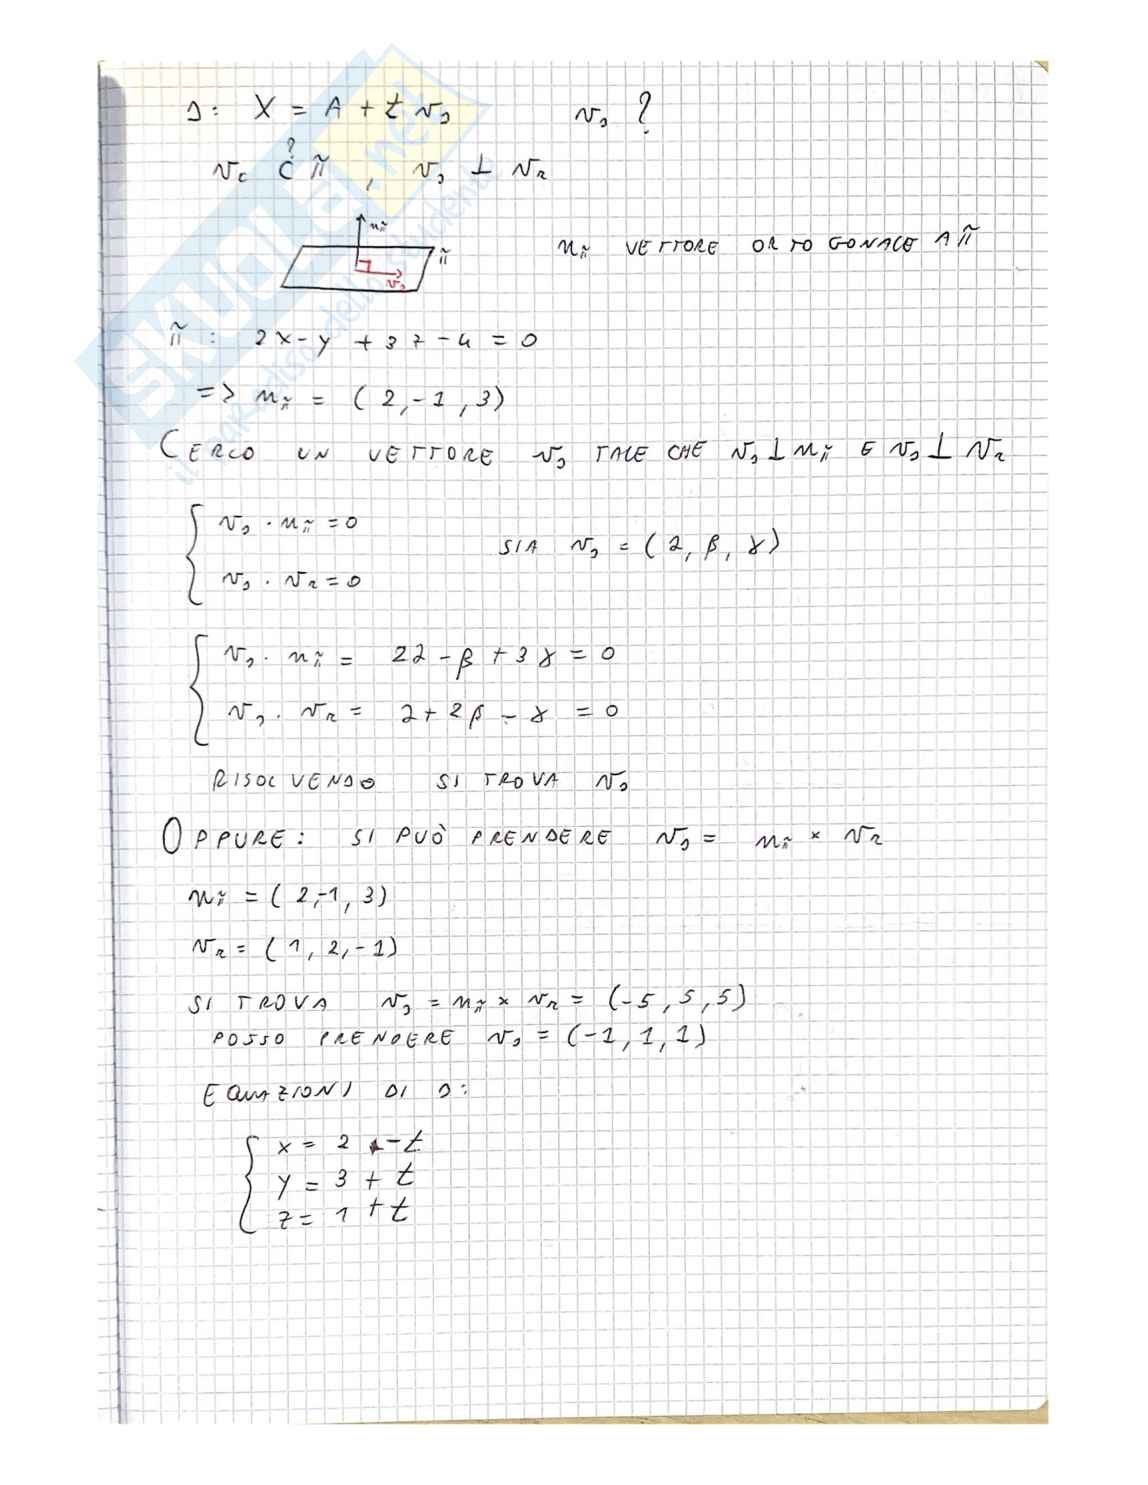 s: X = A + t v_s v_s ?
v_s ⊂ π , v_s ⊥ v_r
?
n_π
π
v_s
n_π VETTORE ORTOGONALE A π
π : 2x - y + 3z - 4 = 0
=> n_π = (2, -1, 3)
CERCO UN VETTORE v_s TALE CHE v_s ⊥ n_π E v_s ⊥ v_r
v_s · n_π = 0
v_s · v_r = 0
SIA v_s = (α, β, γ)
v_s · n_π = 2α - β + 3γ = 0
v_s · v_r = α + 2β - γ = 0
RISOLVENDO SI TROVA v_s
OPPURE: SI PUÒ PRENDERE v_s = n_π × v_r
n_π = (2, -1, 3)
v_r = (1, 2, -1)
SI TROVA v_s = n_π × v_r = (-5, 5, 5)
POSSO PRENDERE v_s = (-1, 1, 1)
EQUAZIONI DI s:
x = 2 - t
y = 3 + t
z = 1 + t
SKUOLA.net